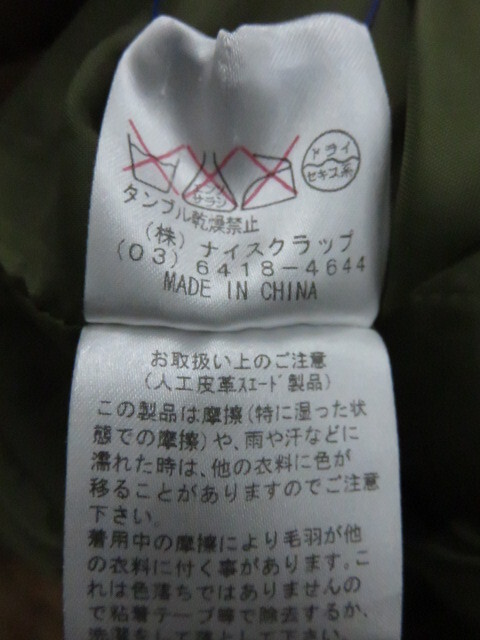 エンソ
サラシ
ドライ
セキユ系
タンブル乾燥禁止
(株) ナイスクラップ
(03) 6418-4644
MADE IN CHINA
お取扱い上のご注意
(人工皮革スエード製品)
この製品は摩擦(特に湿った状
態での摩擦)や、雨や汗などに
濡れた時は、他の衣料に色が
移ることがありますのでご注意
下さい。
着用中の摩擦により毛羽が他
の衣料に付く事があります。こ
れは色落ちではありませんの
で粘着テープ等で除去するか、
洗濯をして落として